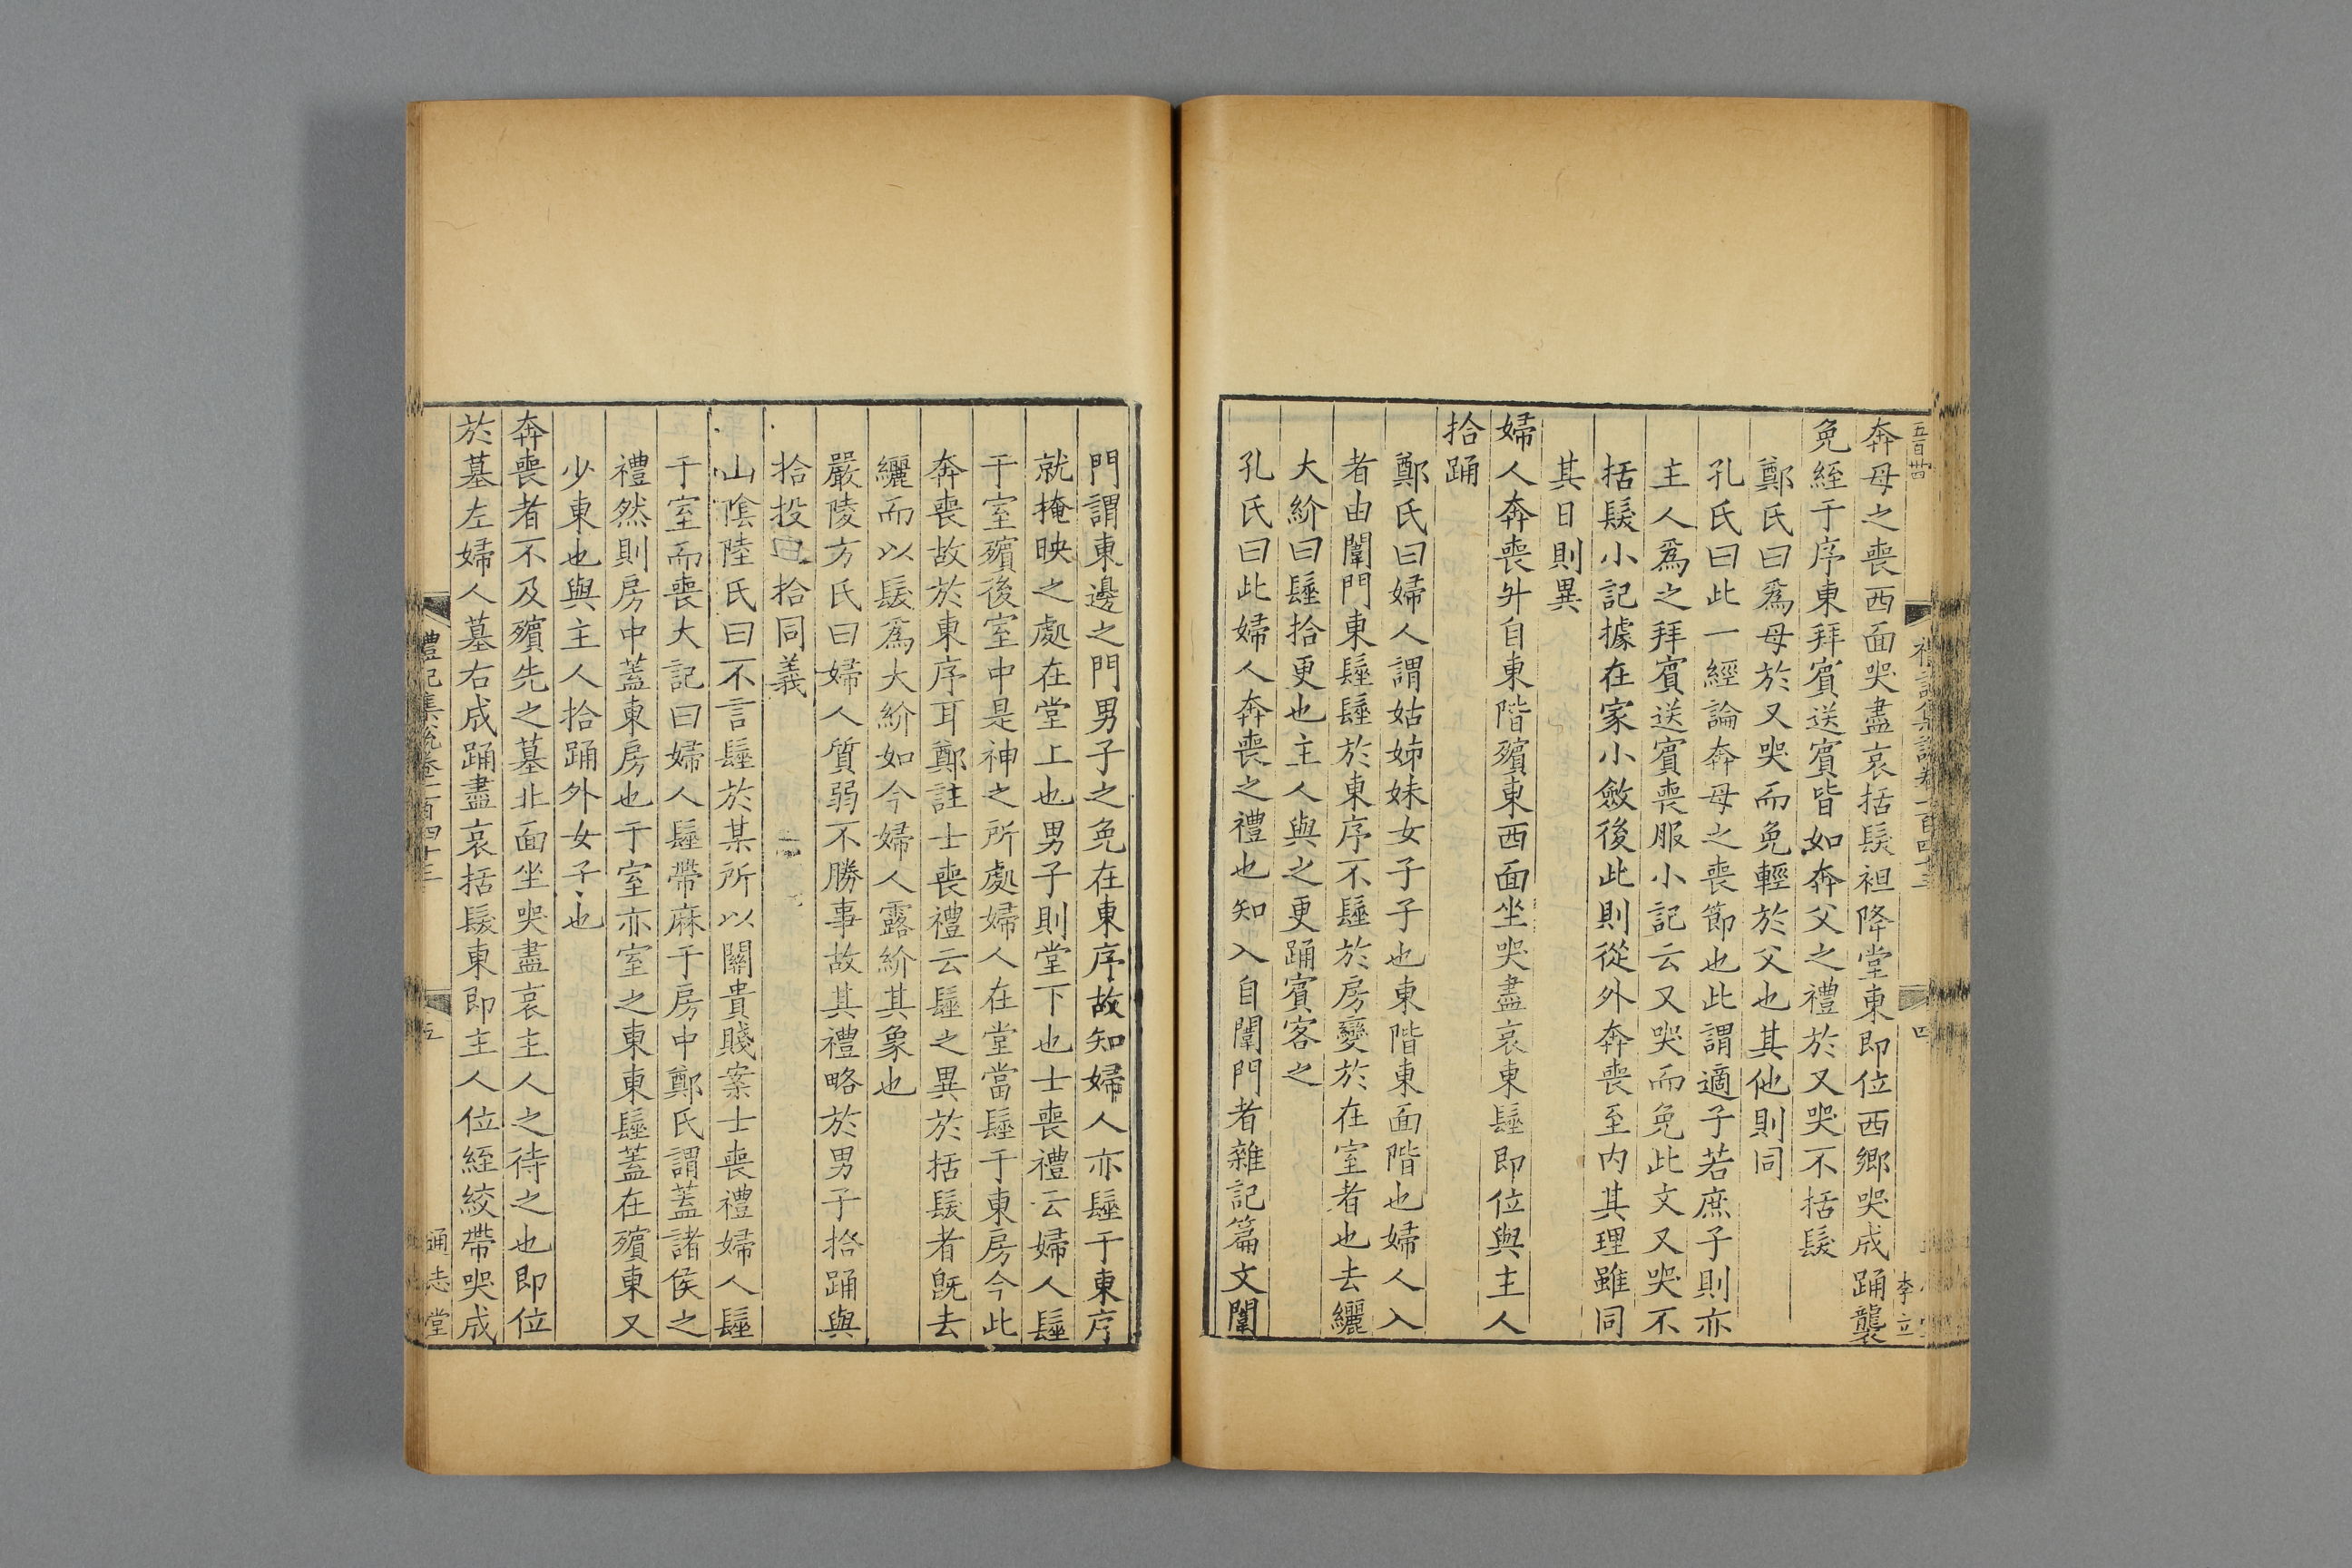 五百廿四
禮記集說卷一百四十三
四
李立
奔母之喪西面哭盡哀括髮袒降堂東即位西鄉哭成踊襲
免絰于序東拜賓送賓皆如奔父之禮於又哭不括髮
鄭氏曰爲母於又哭而免輕於父也其他則同
孔氏曰此一經論奔母之喪節也此謂適子若庶子則亦
主人爲之拜賓送賓喪服小記云又哭而免此文又哭不
括髮小記據在家小斂後此則從外奔喪至内其理雖同
其日則異
婦人奔喪升自東階殯東西面坐哭盡哀東髽即位與主人
拾踊
鄭氏曰婦人謂姑姊妹女子子也東階東面階也婦人入
者由闈門東髽髽於東序不髽於房變於在室者也去纚
大紒曰髽拾更也主人與之更踊賓客之
孔氏曰此婦人奔喪之禮也知入自闈門者雜記篇文闈
門謂東邊之門男子之免在東序故知婦人亦髽于東序
就掩映之處在堂上也男子則堂下也士喪禮云婦人髽
于室殯後室中是神之所處婦人在堂當髽于東房今此
奔喪故於東序耳鄭註士喪禮云髽之異於括髮者旣去
纚而以髮爲大紒如今婦人露紒其象也
嚴陵方氏曰婦人質弱不勝事故其禮略於男子拾踊與
拾投 拾同義
山陰陸氏曰不言髽於某所以關貴賤案士喪禮婦人髽
于室而喪大記曰婦人髽帶麻于房中鄭氏謂蓋諸侯之
禮然則房中蓋東房也于室亦室之東東髽蓋在殯東又
少東也與主人拾踊外女子也
奔喪者不及殯先之墓北面坐哭盡哀主人之待之也即位
於墓左婦人墓右成踊盡哀括髮東即主人位絰絞帶哭成
禮記集說卷一百四十三
五
通志堂